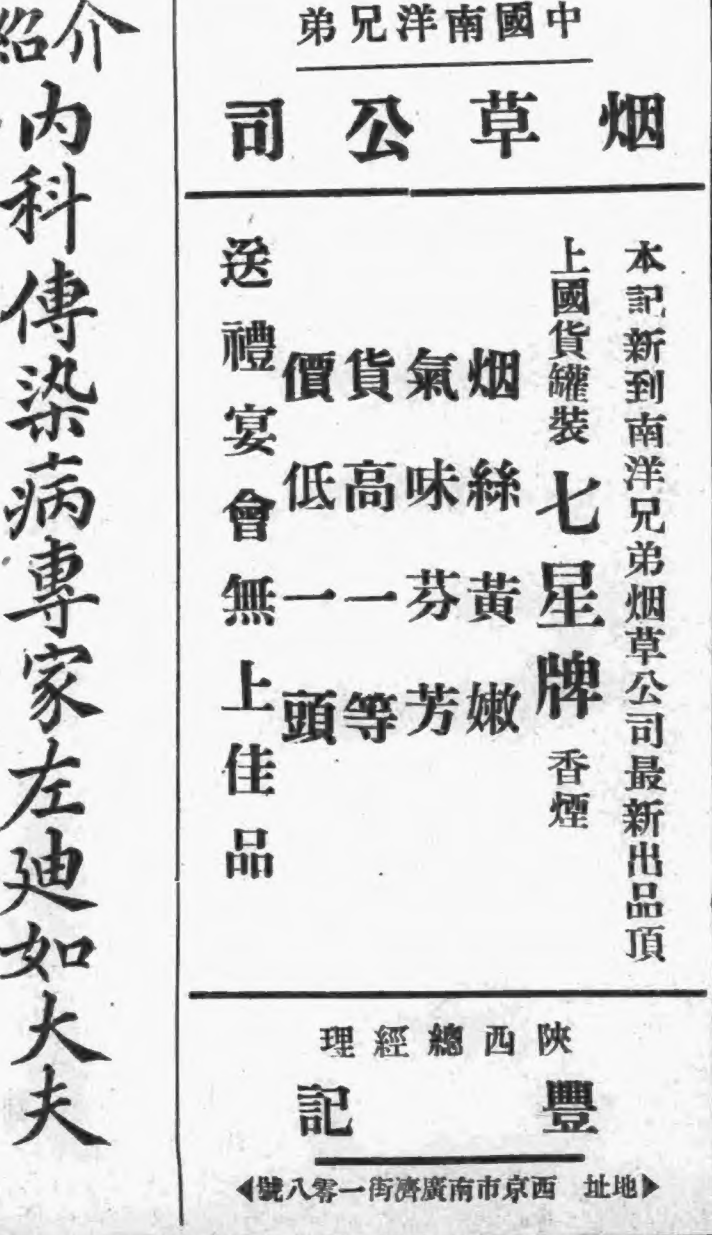 中國南洋兄弟
烟草公司
本記新到南洋兄弟烟草公司最新出品頂
上國貨罐裝七星牌香煙
烟絲黃嫩
氣味芬芳
貨高一等
價低一頭
送禮宴會無上佳品
陝西總經理
豐記
地址 西京市南廣濟街一零八號
介紹
內科傳染病專家左廸如大夫